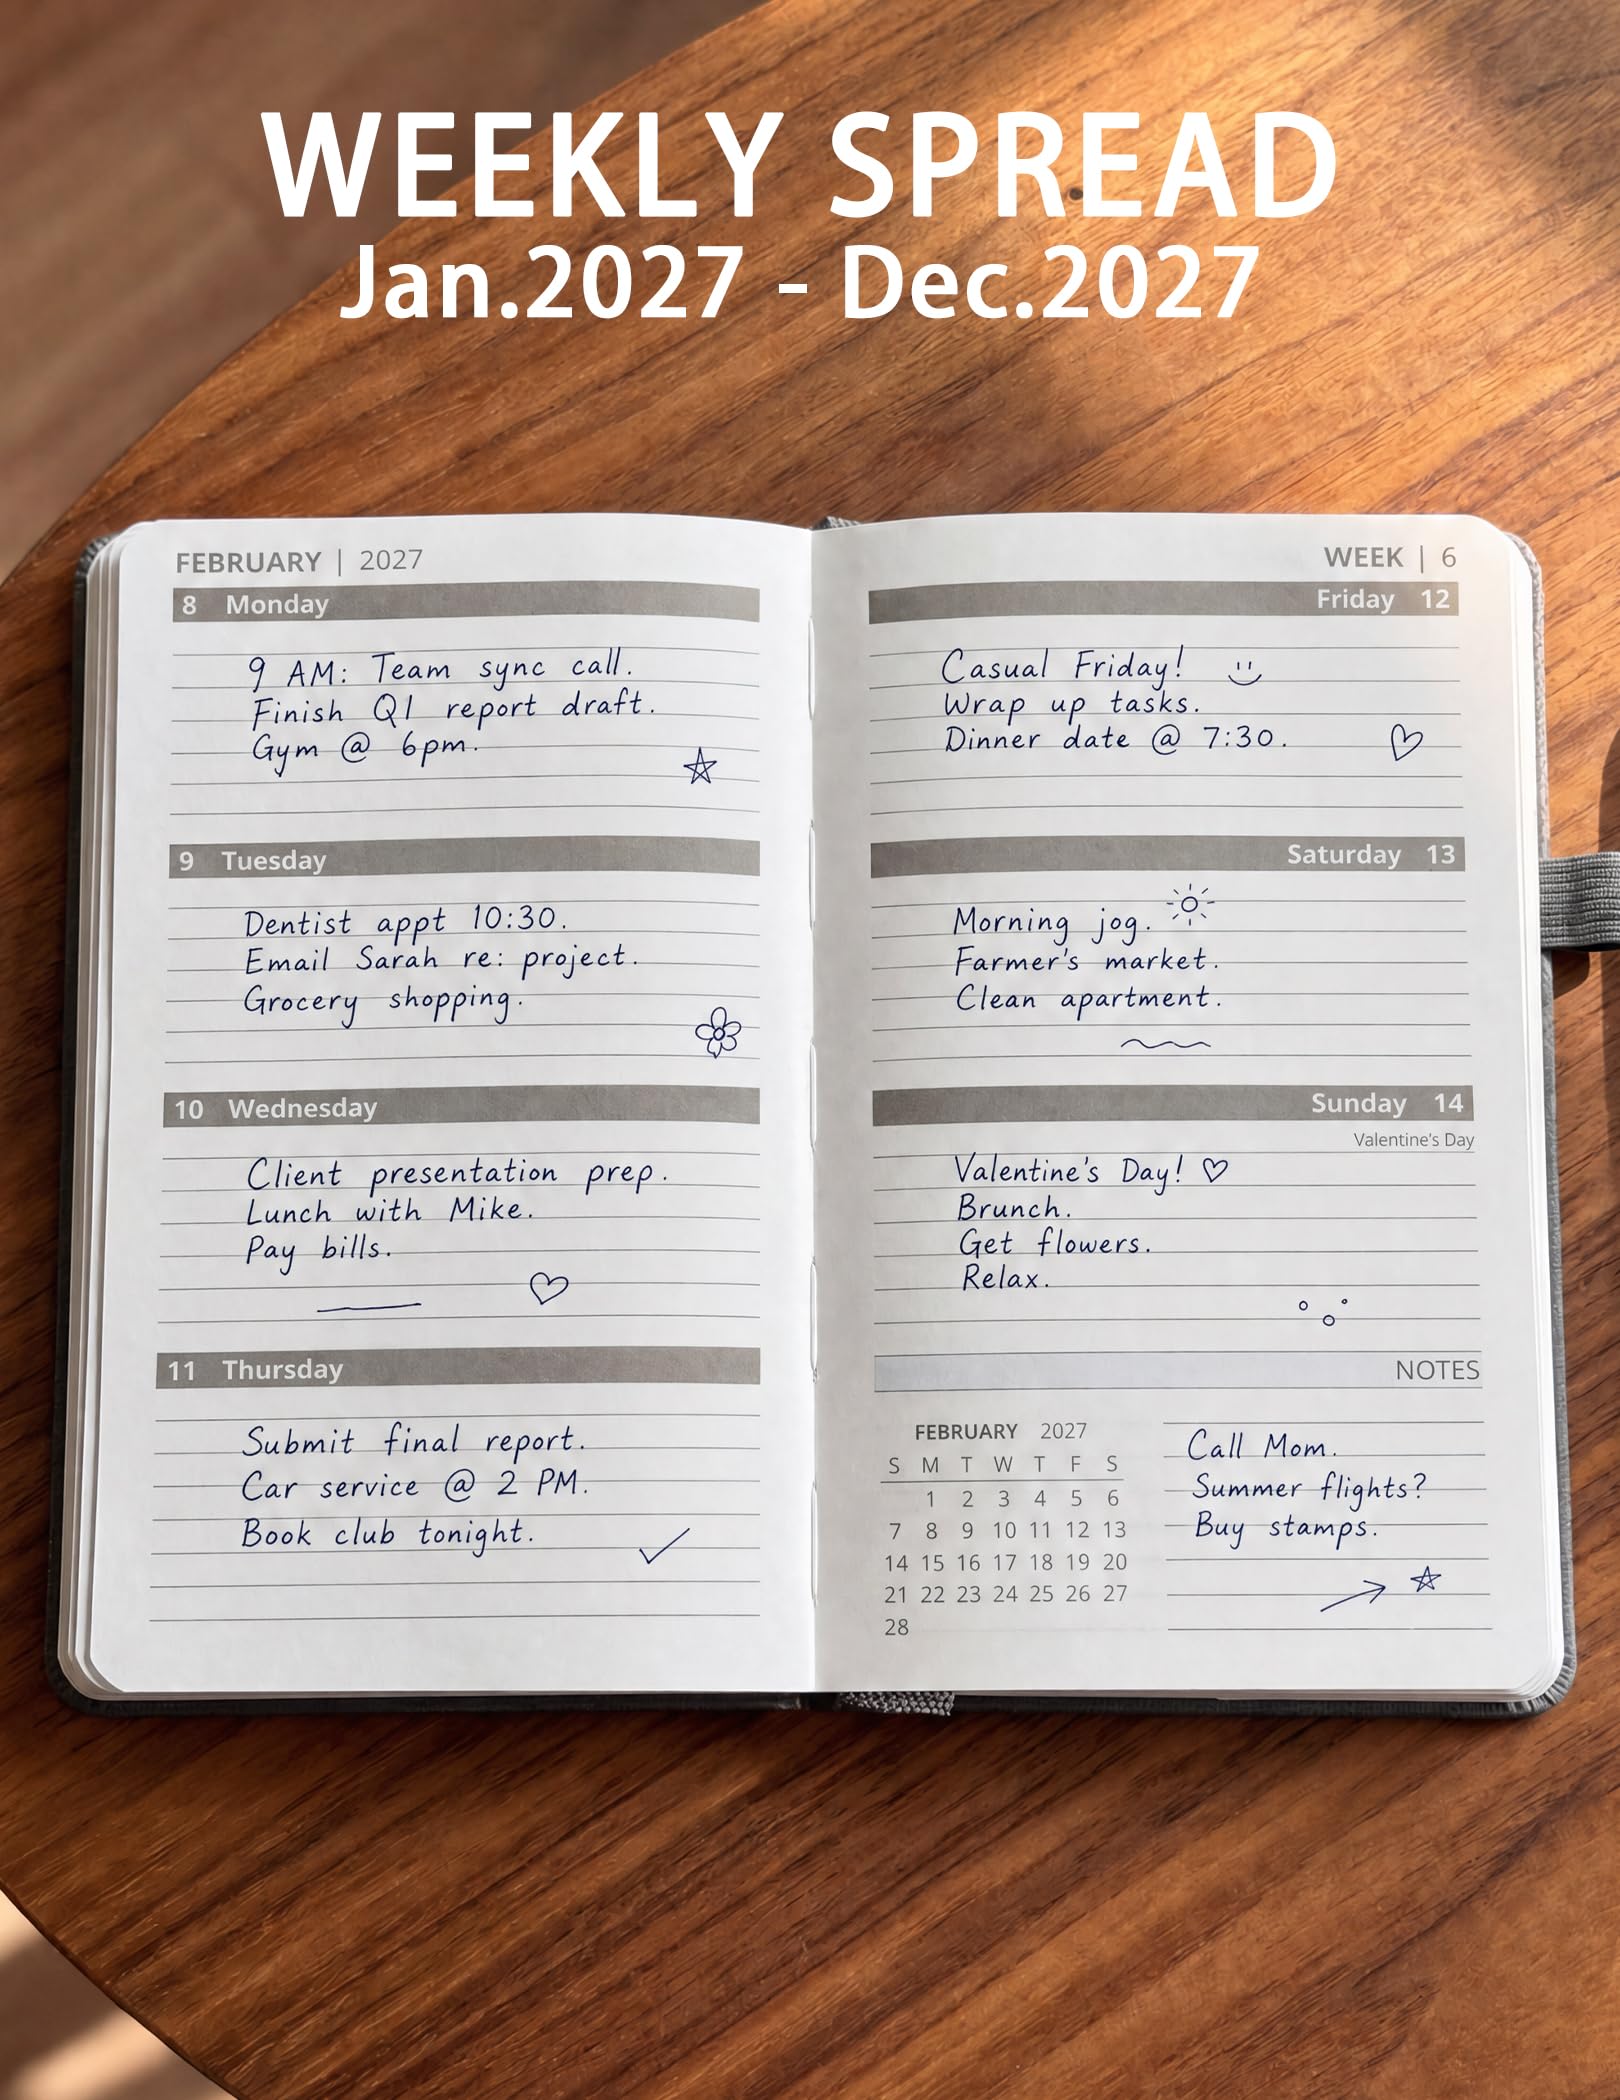 WEEKLY SPREAD
Jan.2027 - Dec.2027
FEBRUARY | 2027
8 Monday
9 AM: Team sync call.
Finish Q1 report draft.
Gym @ 6pm.
9 Tuesday
Dentist appt 10:30.
Email Sarah re: project.
Grocery shopping.
10 Wednesday
Client presentation prep.
Lunch with Mike.
Pay bills.
11 Thursday
Submit final report.
Car service @ 2 PM.
Book club tonight.
WEEK | 6
Friday 12
Casual Friday!
Wrap up tasks.
Dinner date @ 7:30.
Saturday 13
Morning jog.
Farmer's market.
Clean apartment.
Sunday 14
Valentine's Day
Valentine's Day!
Brunch.
Get flowers.
Relax.
NOTES
FEBRUARY 2027
S M T W T F S
1 2 3 4 5 6
7 8 9 10 11 12 13
14 15 16 17 18 19 20
21 22 23 24 25 26 27
28
Call Mom.
Summer flights?
Buy stamps.